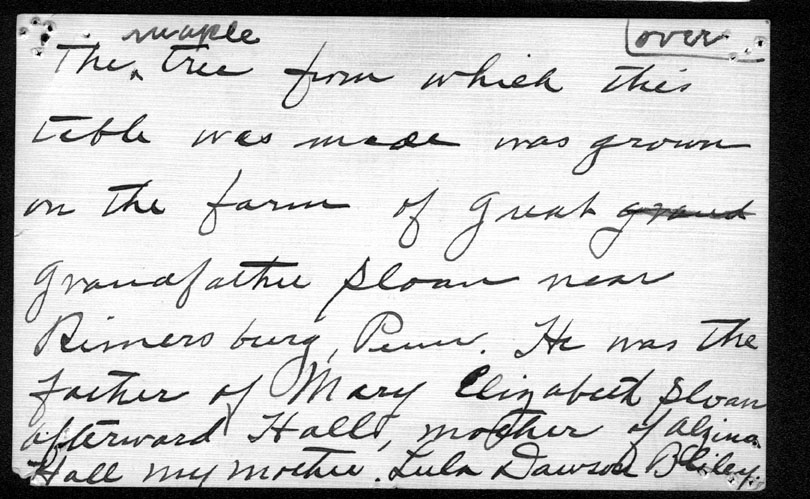 over
maple
The ‸ tree from which this
table was made was grown
on the farm of great grand
grandfather Sloan near
Rimersburg, Penn. He was the
father of Mary Elizabeth Sloan
afterward Hall, mother of Alzina
Hall my mother. Lula Dawson Bliley.